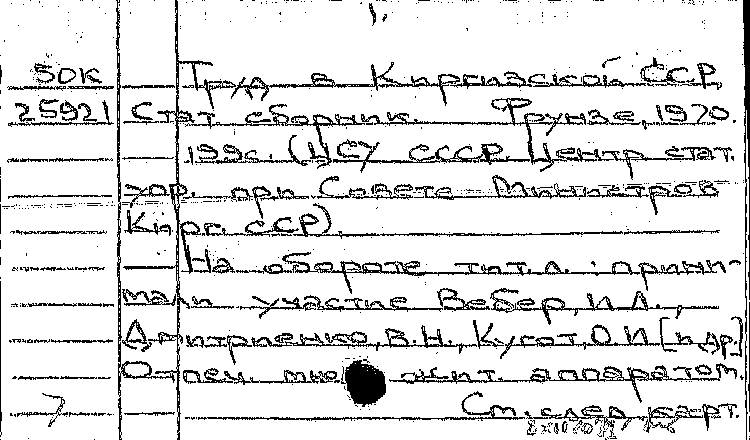 1.
50К Труд в Киргизской ССР,
25921 Стат сборник. Фрунзе, 1970.
199с. (ЦСУ СССР. Центр стат.
упр. при Совете Министров
Кирг. ССР).
На обороте тит. л. : прини-
мали участие Вебер, И.А.,
Дмитриенко, В.Н., Кугот, О.И [и др.]
Отпеч. мно жит. аппаратом.
7 См. след карт.